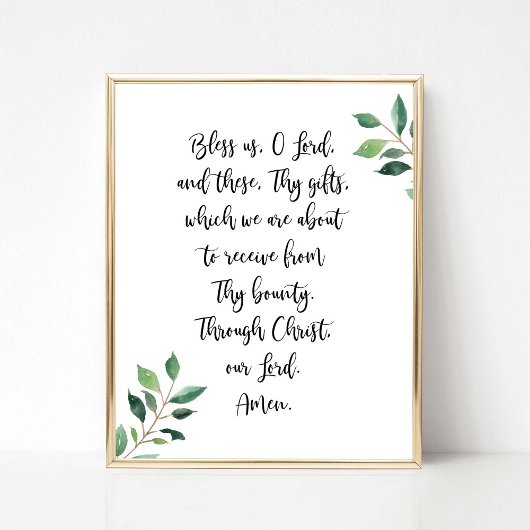 Bless us, O Lord,
and these, Thy gifts,
which we are about
to receive from
Thy bounty.
Through Christ,
our Lord.
Amen.